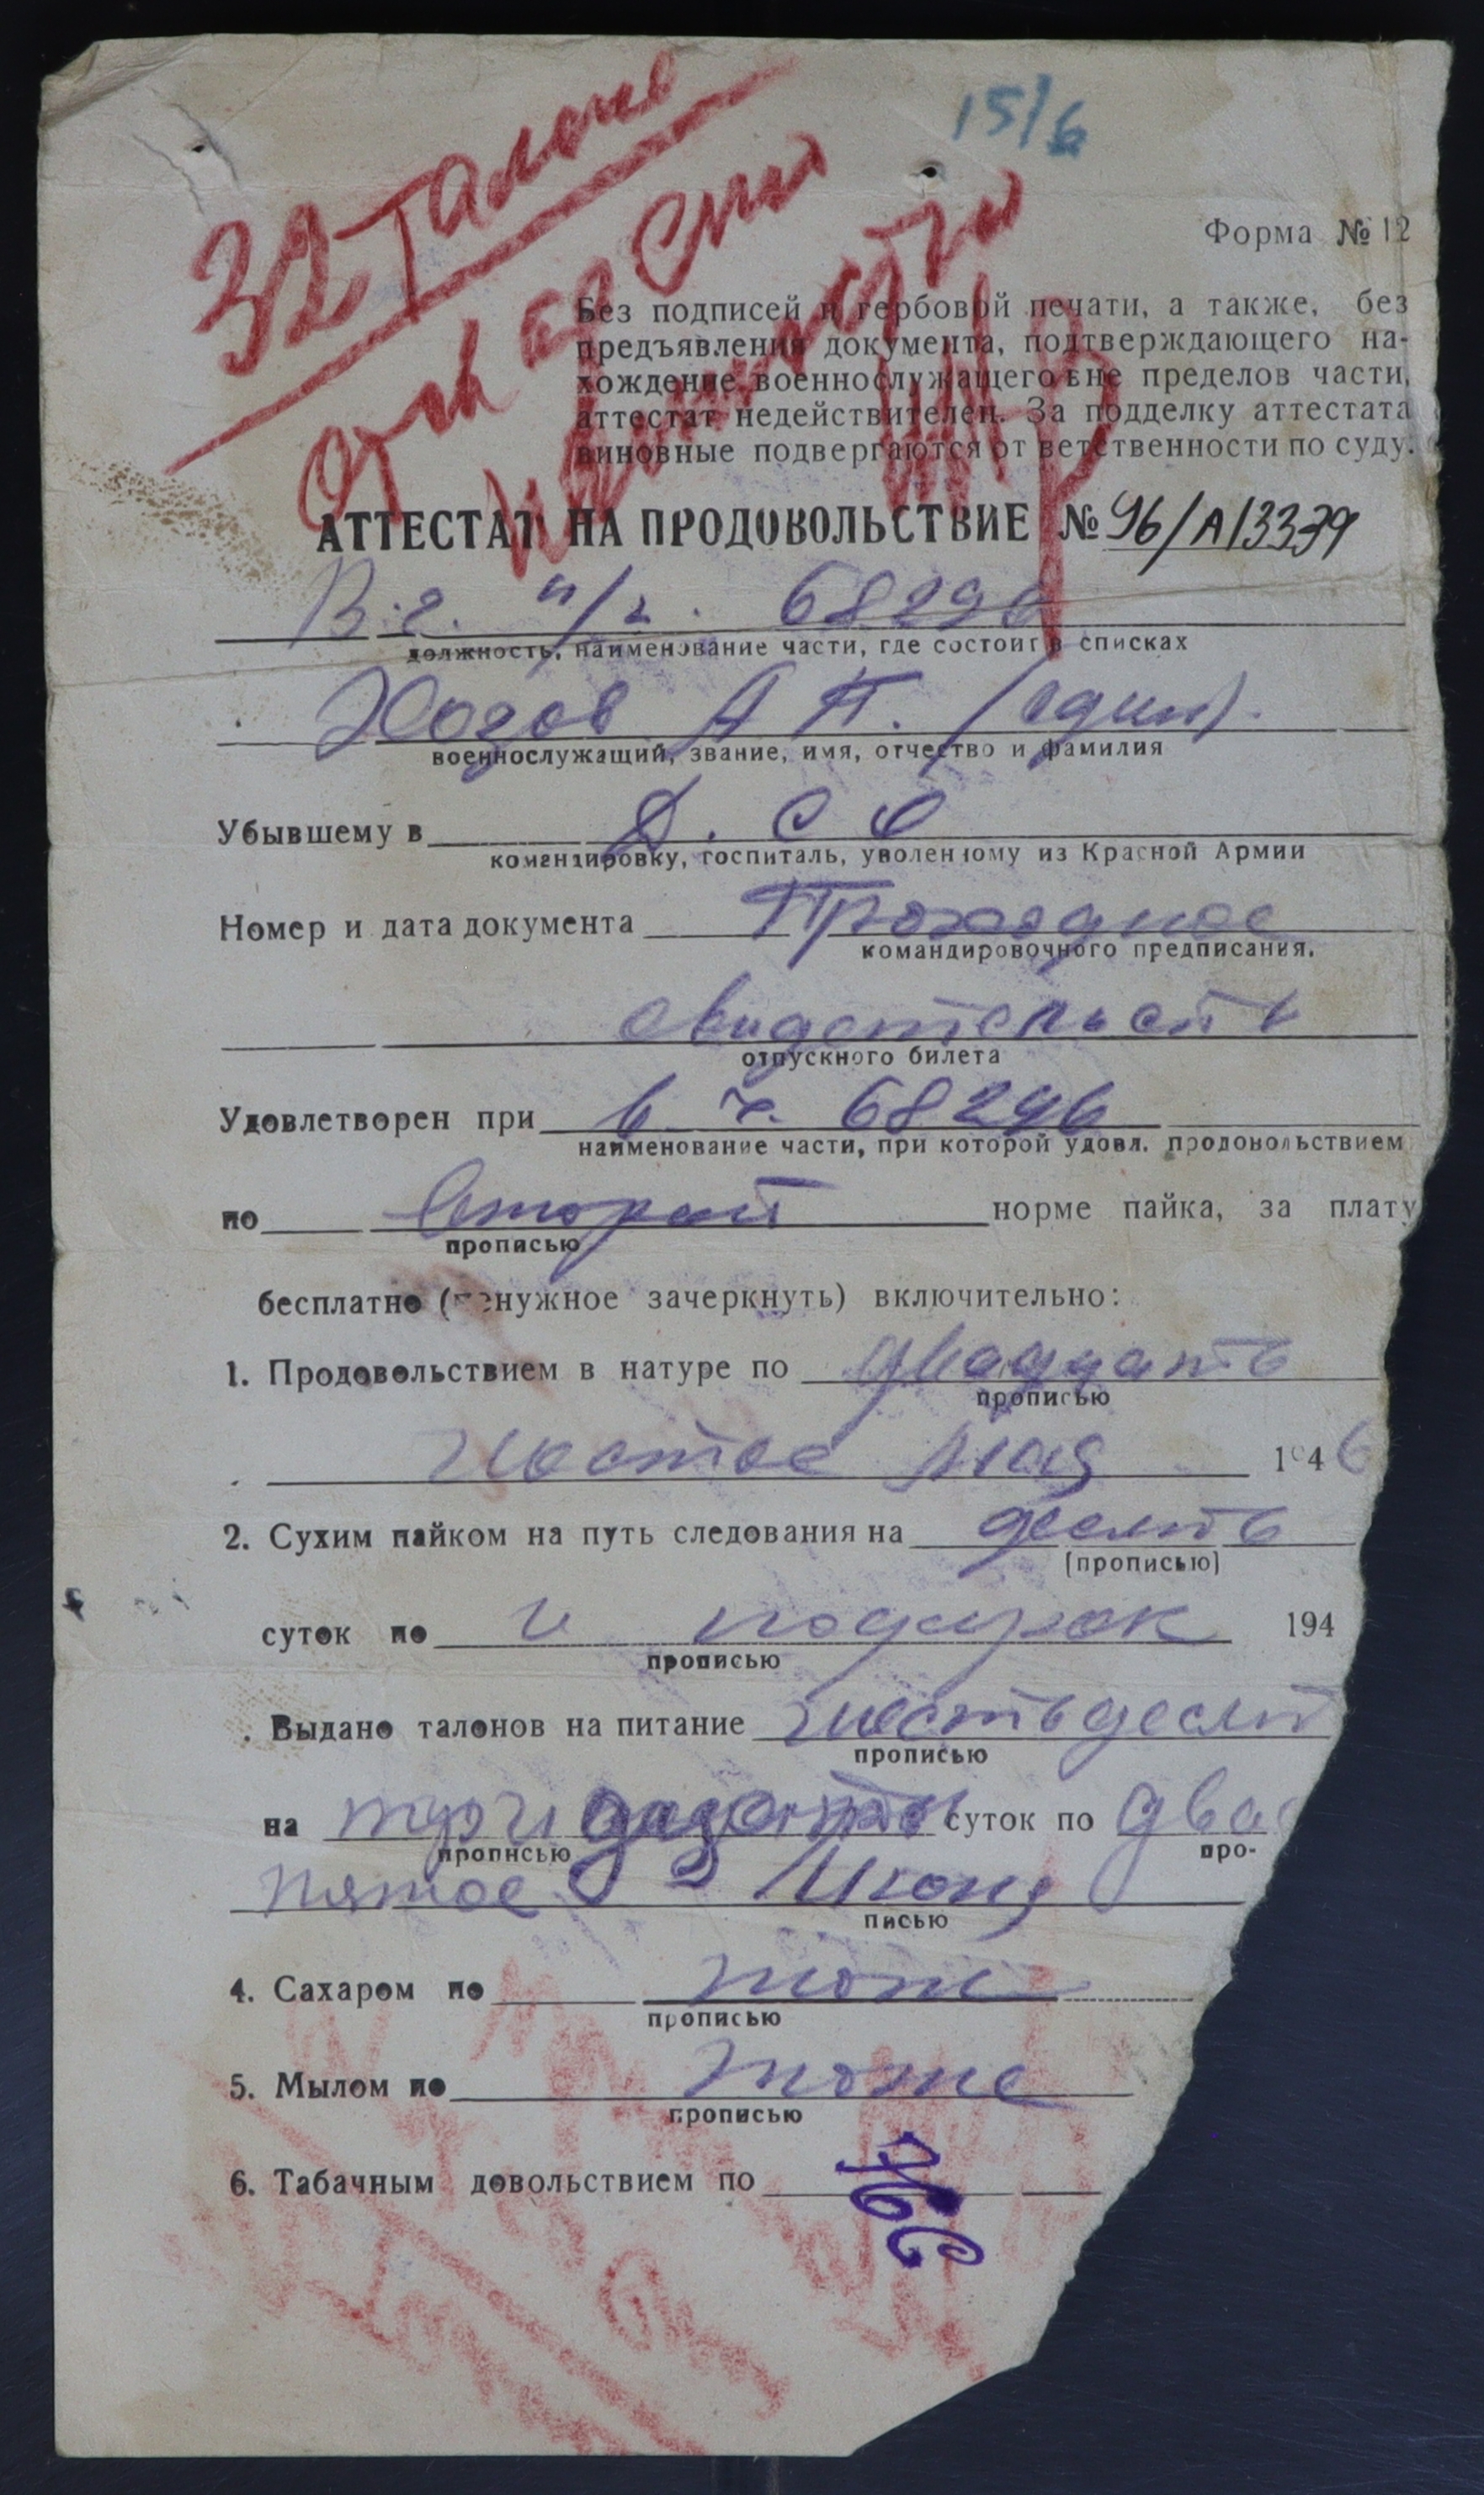 32 талона
15/6
Форма № 12
Без подписей и гербовой печати, а также, без
предъявления документа, подтверждающего на-
хождение военнослужащего вне пределов части,
аттестат недействителен. За подделку аттестата
виновные подвергаются от ветственности по суду.
АТТЕСТАТ НА ПРОДОВОЛЬСТВИЕ № 96/А/3339
68296
должность, наименование части, где состоит в списках
А П. (один).
военнослужащий, звание, имя, отчество и фамилия
Убывшему в Д. С О
командировку, госпиталь, уволенному из Красной Армии
Номер и дата документа Проходное
командировочного предписания.
свидетельств
отпускного билета
Удовлетворен при в. ч. 68296
наименование части, при которой удовл. продовольствием
по второй норме пайка, за плату
прописью
бесплатно (ненужное зачеркнуть) включительно:
1. Продовольствием в натуре по двадцать
прописью
шостое мая 1946
2. Сухим пайком на путь следования на десять
(прописью)
суток по и подарок 194
прописью
Выдано талонов на питание шестьдесят
прописью
на тридцать суток по два
прописью про-
пятое Июня
писью
4. Сахаром по тоже
прописью
5. Мылом по тоже
прописью
6. Табачным довольствием по